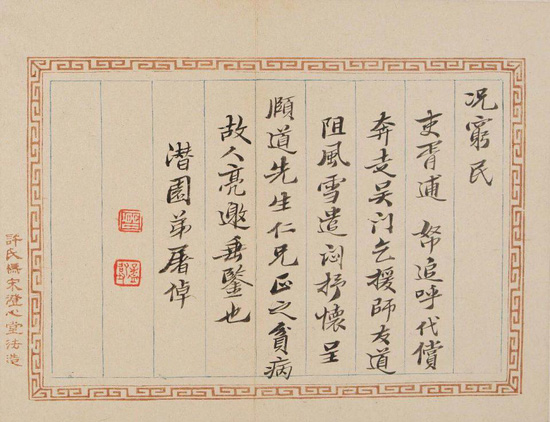 况窮民
吏胥逋帑追呼代償
奔走吴门乞援師友道
阻風雪遣悶抒懷呈
頤道先生仁兄正之貧病
故人亮邀垂鑒也
潛園弟屠倬
許氏橅宋澄心堂法造